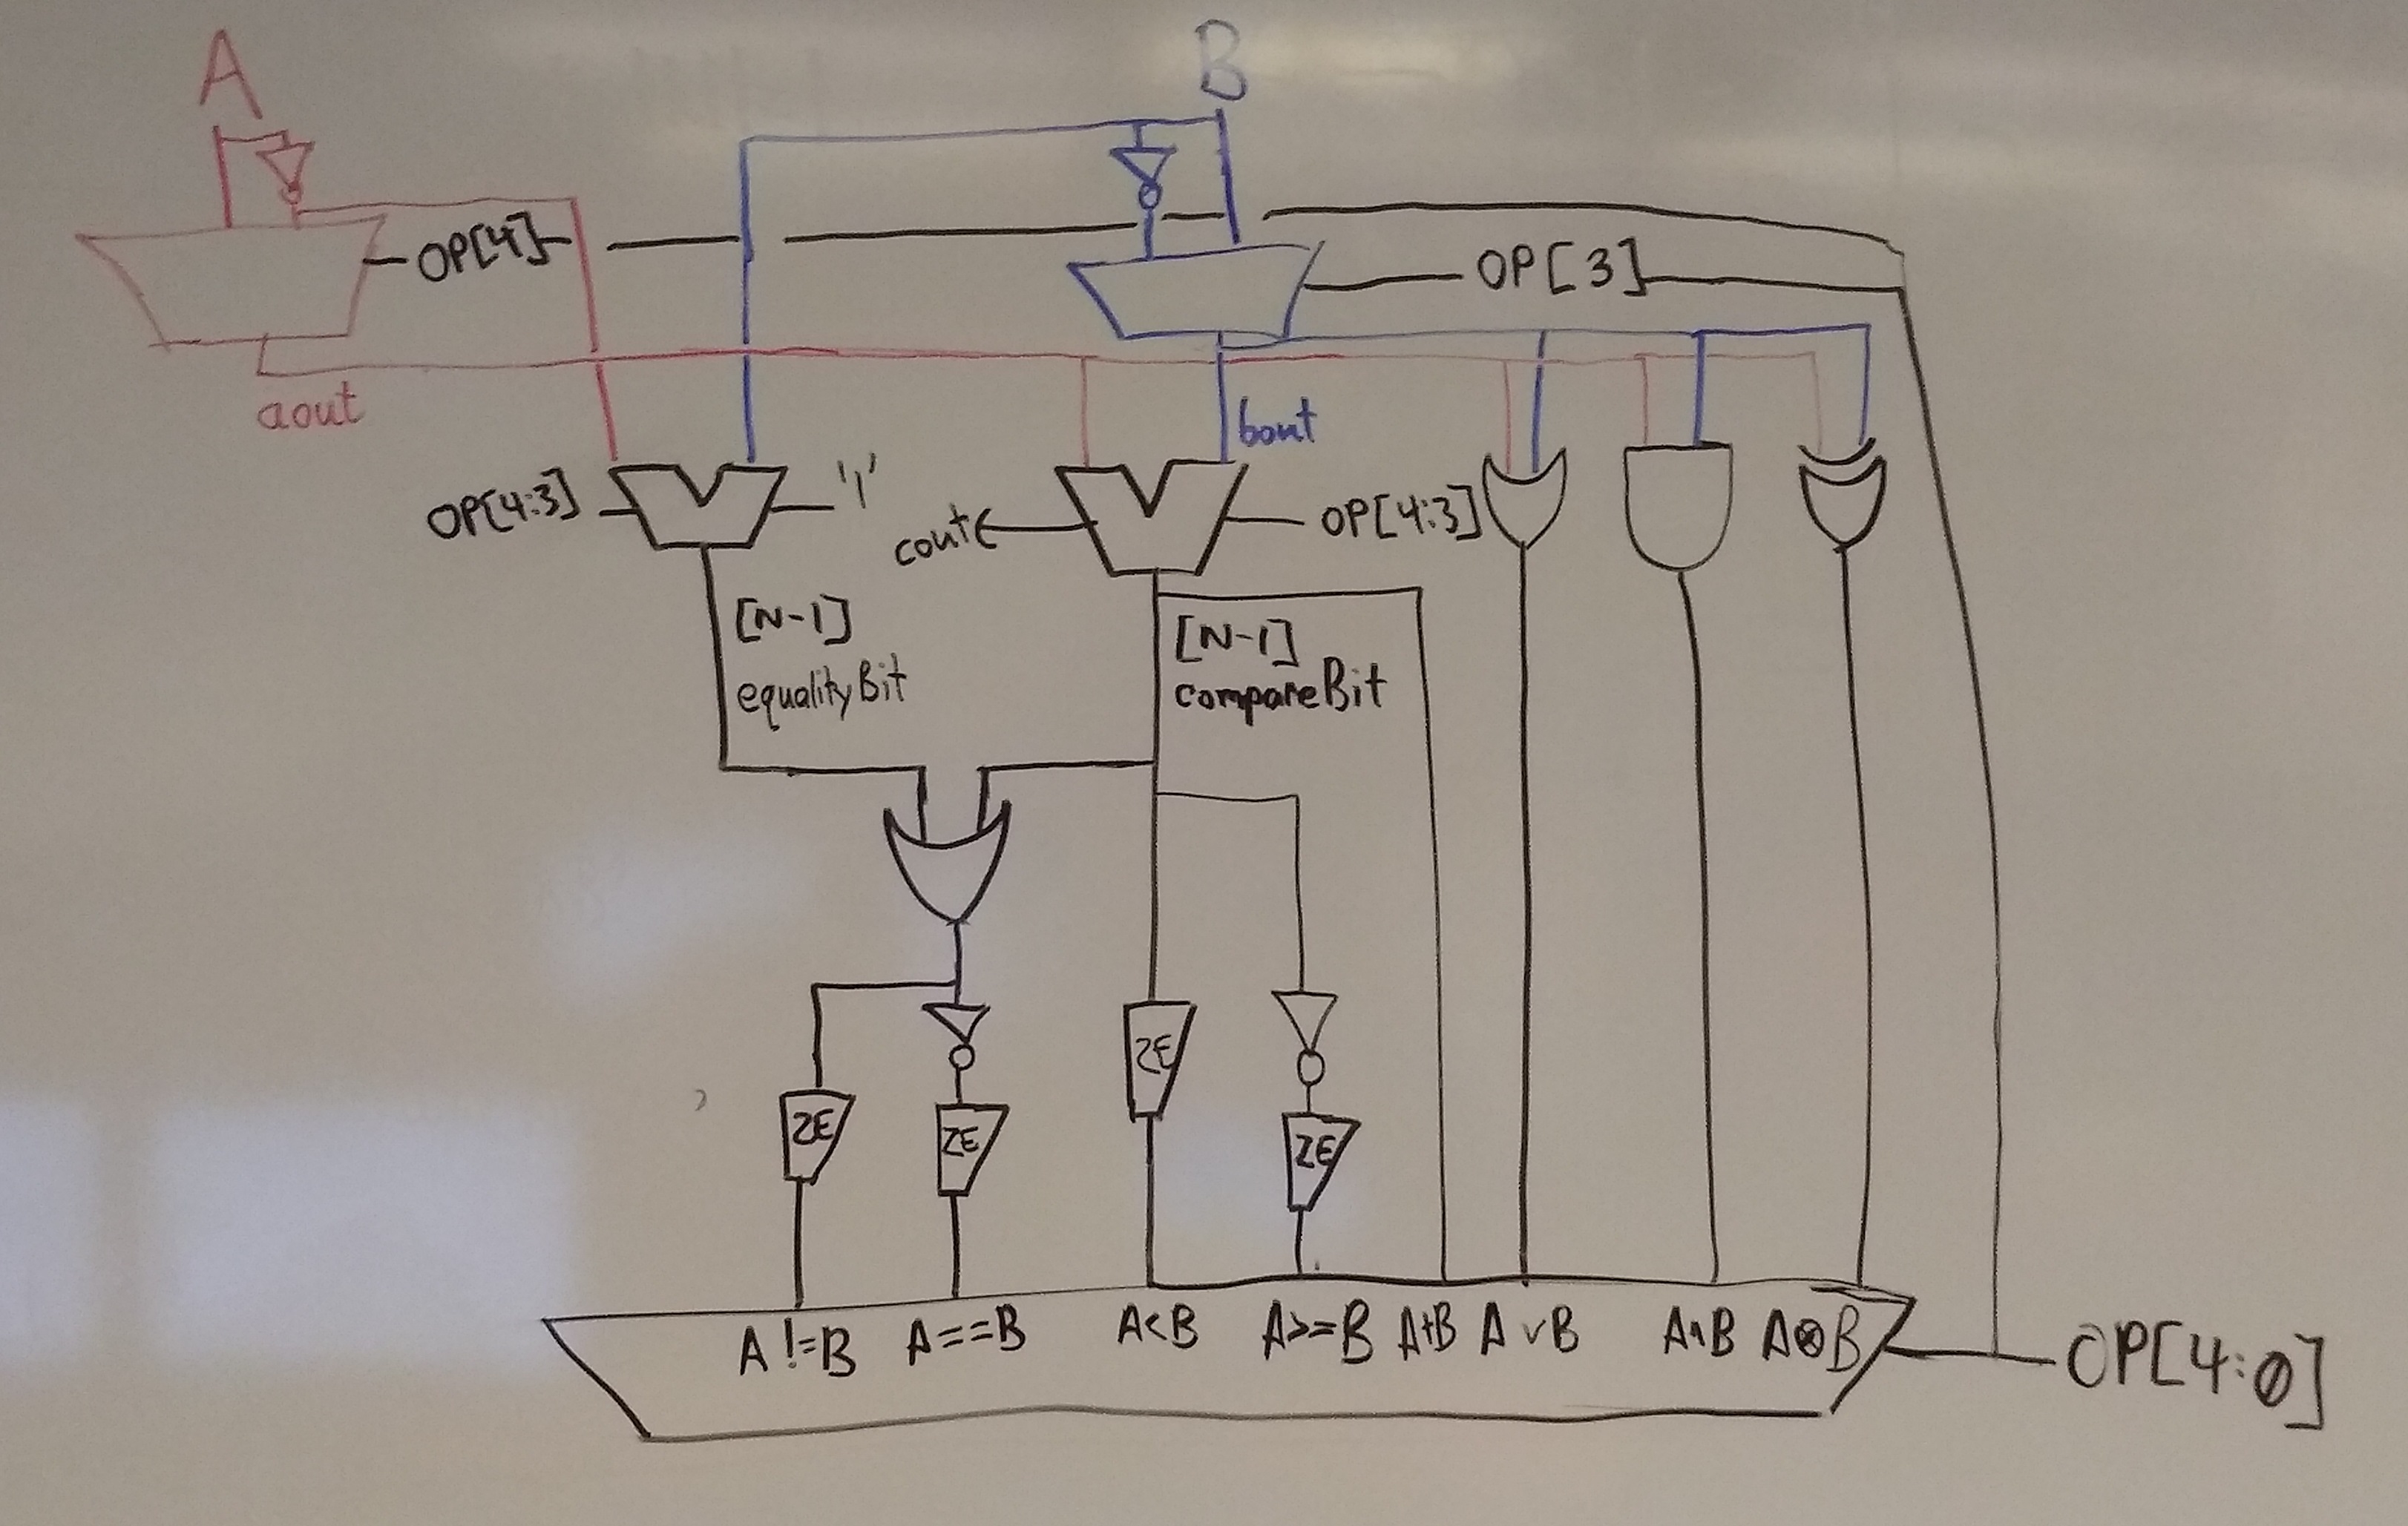 A
B
OP[4]
OP[3]
aout
bout
OP[4:3]
'1'
cout
OP[4:3]
[N-1]
equalityBit
[N-1]
compareBit
ZE
ZE
ZE
ZE
A!=B
A==B
A<B
A>=B
A+B
A∨B
A∧B
A⊗B
OP[4:0]